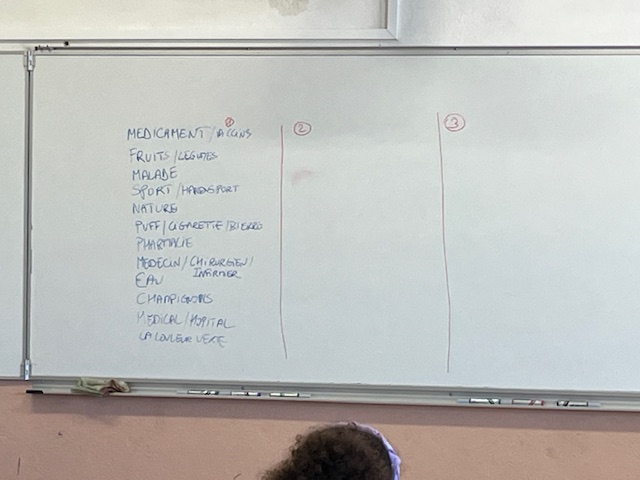 ① ② ③
MEDICAMENT / VACCINS
FRUITS / LEGUMES
MALADE
SPORT / HANDISPORT
NATURE
PUFF / CIGARETTE / BIERRE
PHARMACIE
MEDECIN / CHIRURGIEN /
INFIRMIER
EAU
CHAMPIGNONS
MEDICAL / HOPITAL
LA COULEUR VERTE